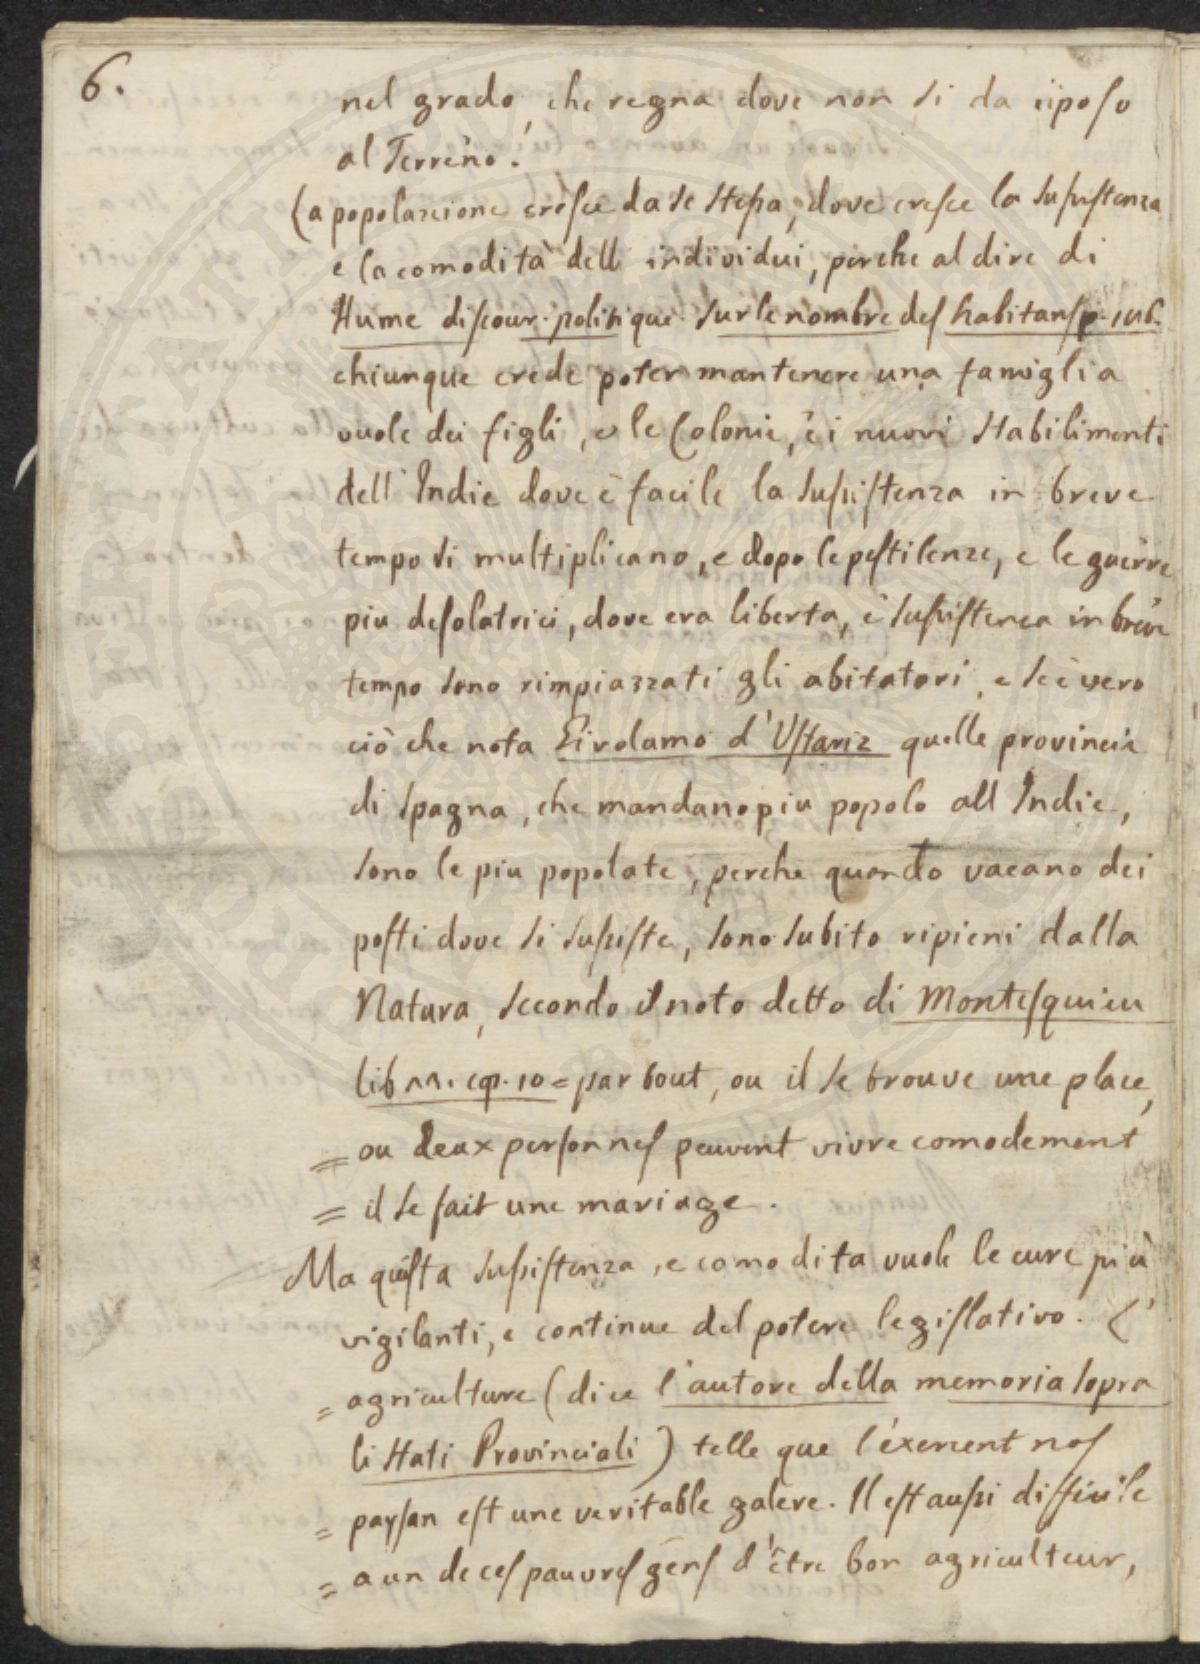 6.
nel grado, che regna dove non si da riposo
al Terreno.
La popolazione cresce da se stessa, dove cresce la sussistenza
e la comodità delli individui, perche al dire di
Hume discour. politique. sur le nombre des habitans p. 106.
chiunque crede poter mantenere una famiglia
vuole dei figli, e le Colonie, e i nuovi stabilimenti
dell'Indie dove è facile la sussistenza in breve
tempo si multiplicano, e dopo le pestilenze, e le guerre
piu desolatrici, dove era liberta, e sussistenza in breve
tempo sono rimpiazzati gli abitatori, e se è vero
ciò che nota Girolamo d'Ustariz quelle provincie
di Spagna, che mandano piu popolo all Indie,
sono le piu popolate, perche quando vacano dei
posti dove si sussiste, sono subito ripieni dalla
Natura, secondo il noto detto di Montesquieu
lib 11. cap. 10 = par tout, ou il se trouve une place,
= ou deux personnes peuvent vivre comodement
= il se fait une mariage.
Ma questa sussistenza, e comodita vuole le cure più
vigilanti, e continue del potere legislativo. L'
= agriculture (dice l'autore della memoria sopra
li stati Provinciali) telle que l'éxercent nos
= paysan est une veritable galere. Il est aussi difficile
= a un de ces pauvres gens d'être bon agriculteur,